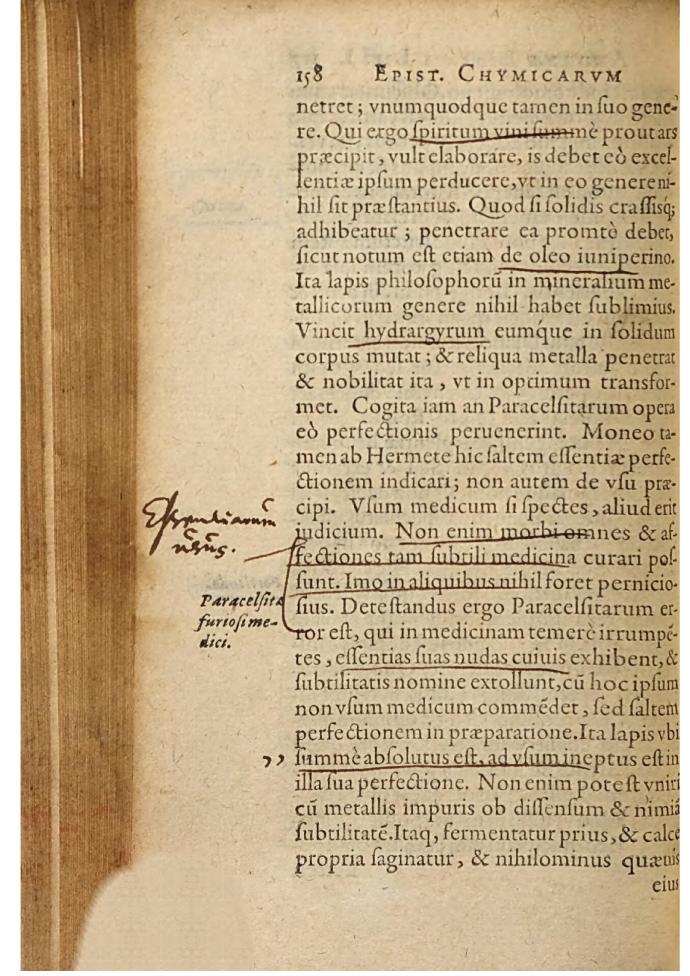 158 EPIST. CHYMICARVM
netret; vnumquodque tamen in ſuo gene-
re. Qui ergo ſpiritum vini ſummè prout ars
præcipit, vult elaborare, is debet eò excel-
lentiæ ipſum perducere, vt in eo genere ni-
hil ſit præſtantius. Quod ſi ſolidis craſſisq;
adhibeatur; penetrare ea promtè debet,
ſicut notum eſt etiam de oleo iuniperino.
Ita lapis philoſophorũ in mineralium me-
tallicorum genere nihil habet ſublimius.
Vincit hydrargyrum eumq́ue in ſolidum
corpus mutat; & reliqua metalla penetrat
& nobilitat ita, vt in optimum transfor-
met. Cogita iam an Paracelſitarum opera
eò perfectionis peruenerint. Moneo ta-
men ab Hermete hic ſaltem eſſentiæ perfe-
ctionem indicari; non autem de vſu præ-
cipi. Vſum medicum ſi ſpectes, aliud erit
iudicium. Non enim morbi omnes & af-
fectiones tam ſubtili medicina curari poſ-
ſunt. Imo in aliquibus nihil foret pernicio-
ſius. Deteſtandus ergo Paracelſitarum er-
ror eſt, qui in medicinam temerè irrumpẽ-
tes, eſſentias ſuas nudas cuiuis exhibent, &
ſubtilitatis nomine extollunt, cũ hoc ipſum
non vſum medicum commẽdet, ſed ſaltem
perfectionem in præparatione. Ita lapis vbi
ſummè abſolutus eſt, ad vſum ineptus eſt in
illa ſua perfectione. Non enim poteſt vniri
cũ metallis impuris ob diſſenſum & nimiã
ſubtilitatẽ. Itaq, fermentatur prius, & calce
propria ſaginatur, & nihilominus quæuis
eius
Eſſentiarum
uſus.
Paracelſitæ
furioſi me-
dici.